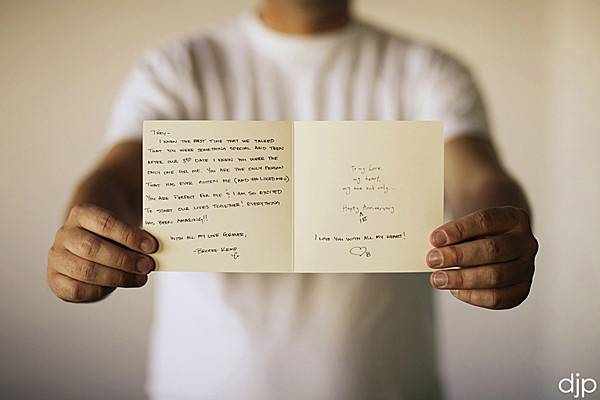 Trey-
I KNEW THE FIRST TIME THAT WE TALKED
THAT YOU WERE SOMETHING SPECIAL AND THEN
AFTER OUR 3RD DATE I KNEW YOU WERE THE
ONLY ONE FOR ME. YOU ARE THE ONLY PERSON
THAT HAS EVER GOTTEN ME (AND STILL LIKED ME)
YOU ARE PERFECT FOR ME & I AM SO EXCITED
TO START OUR LIVES TOGETHER! EVERYTHING
HAS BEEN AMAZING!!
WITH ALL MY LOVE FOREVER,
-BROOKE KEMP
To my Love
my heart
my one and only...
Happy Anniversary
I LOVE YOU WITH ALL MY HEART!
B
djp